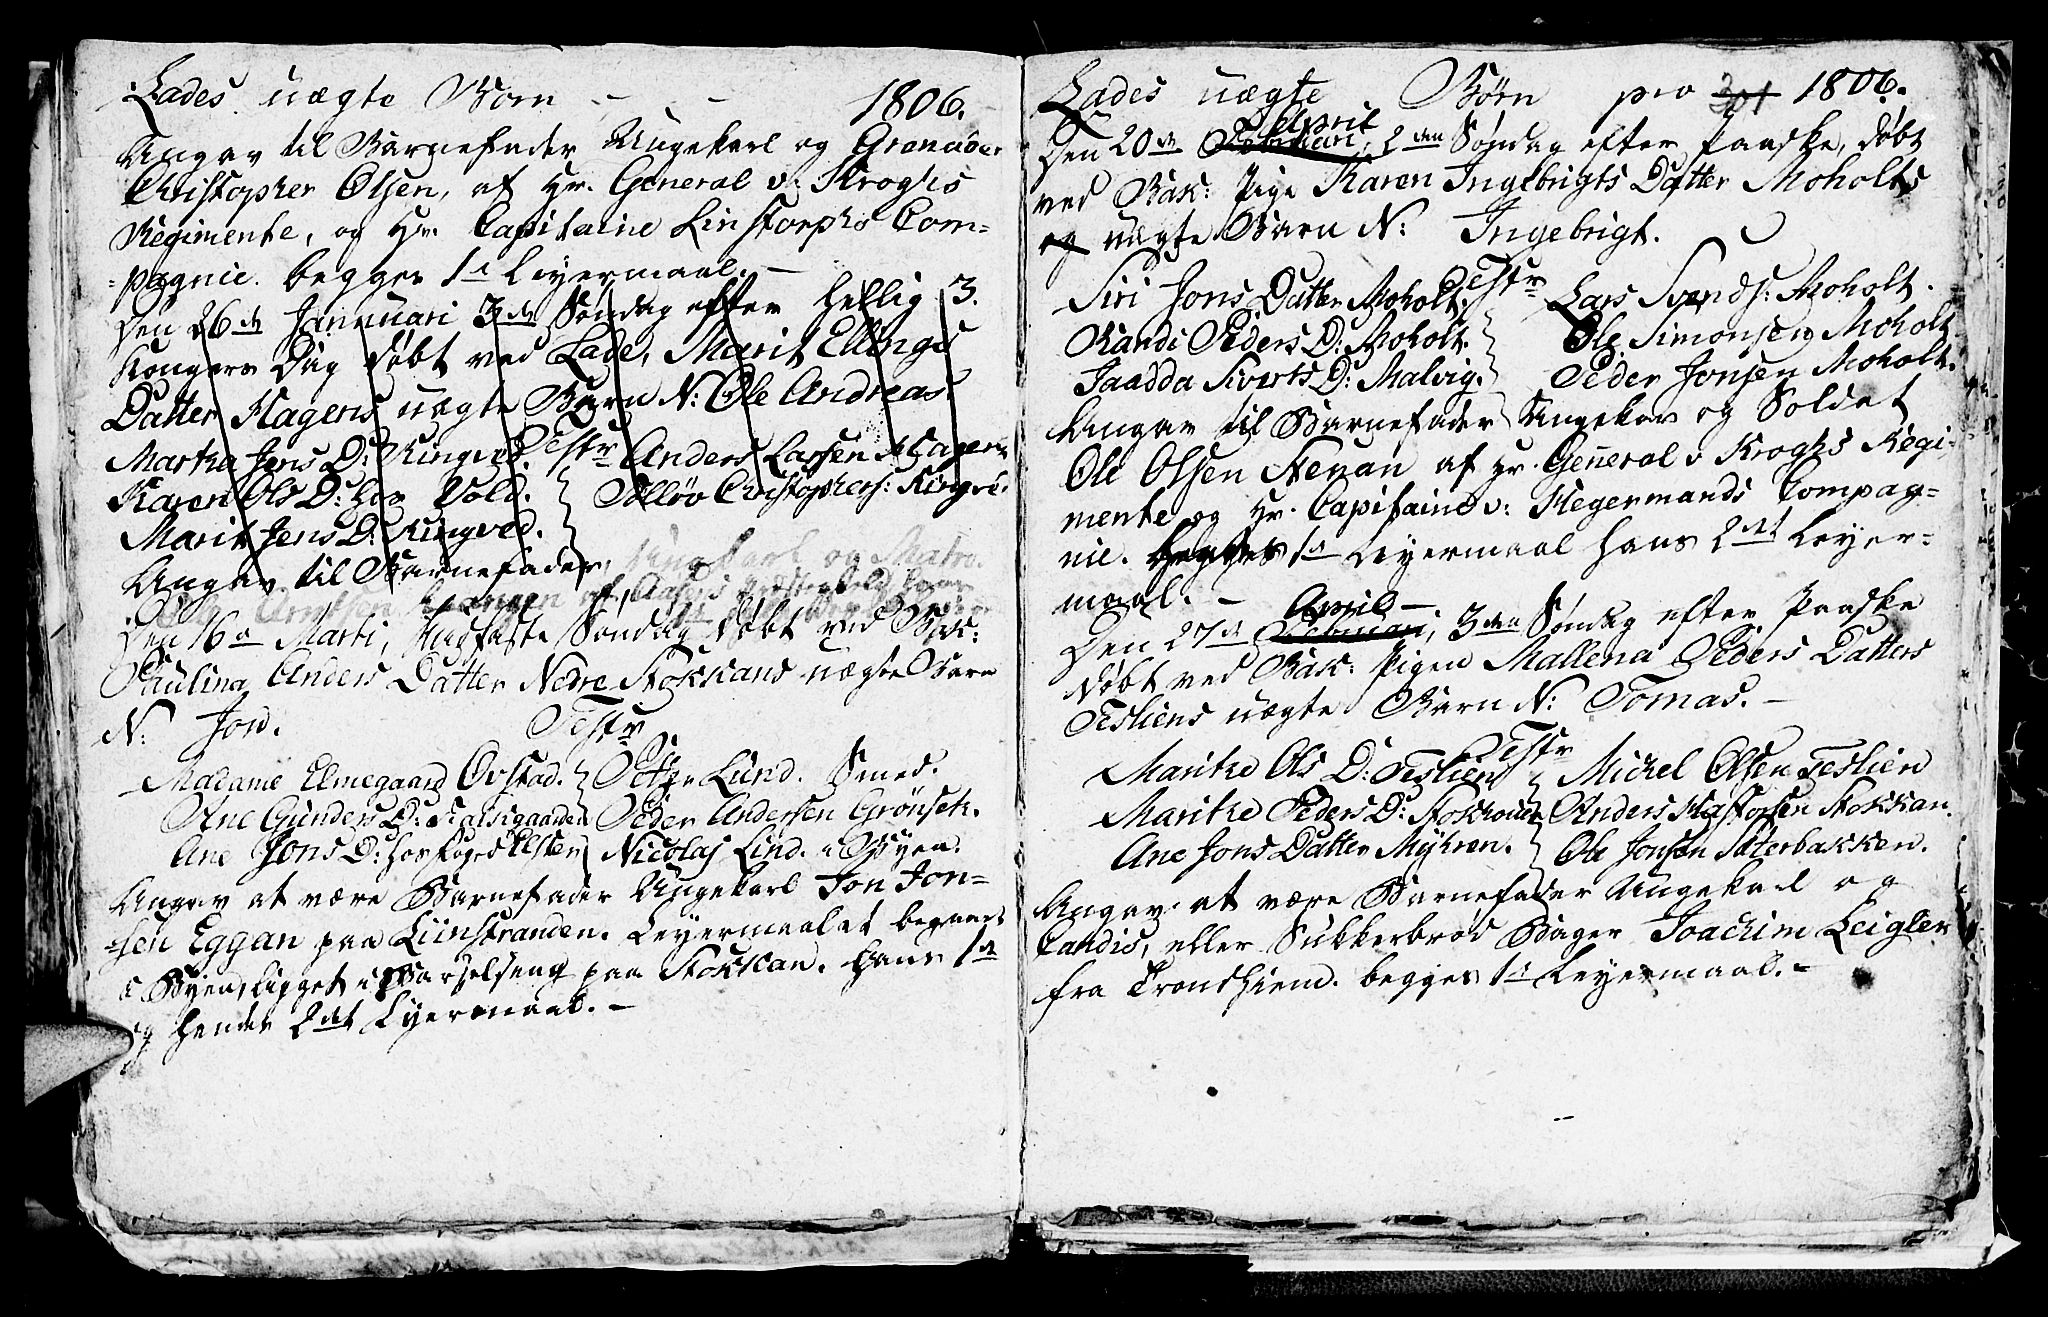 Lades uægte Børn - - 1806.
Angav til Barnefader Ungekarl og Grenadeer
Christopher Olsen, af Hr. General v: Kroghs
Regimente, og Hr. Capitaine Linstorphs Com-
pagnie. begges 1te Leyermaal. -
Den 26de Januari 3de Søndag efter Hellig 3.
Kongers Dag døbt ved Lade, Marit Ellings
Datter Hagens uægte Barn N: Ole Andreas.
Testr
Martha Jens D: Ringved. Anders Larsen Hagen
Karen Ols D: hos Vold. Ellev Christophers: Ringve.
Marit Jens D: Ringved.
Angav til Barnefader, Ungekarl og
Den 16de Marti, Midfaste Søndag døbt ved Bak:
Paulina Anders Datter Nedre Stokkans uægte Barn
N: Jon. Testr
Madame Elmegaard Øvstad. Petter Lund. Smed.
Ane Gunders D: Peder Andersen Grönsek.
Ane Jons D: hos Nicolaj Lind. i Byen.
Angav at være Barnefader Ungekarl Jon Jon-
sen Eggan paa Liinstranden. Leyermaalet begaaet
i Byen, ligget i Barselseng paa Stokkan. Hans 1te
og hendes 2det Leyermaal. -
Lades uægte Børn pro 301 1806.
April
Den 20de Februari, 2den Søndag efter Paaske, døbt
ved Bak: Pige Karen Ingebrigts Datter Moholts
og uægte Barn N: Ingebrigt.
Testr
Siri Jons Datter Moholt. Lars Svends: Moholt.
Randi Peders D: Moholt. Ole Simonsen Moholt
Jaadda Siverts D: Malvig. Peder Jonsen Moholt.
Angav til Barnefader Ungekar og Soldat
Ole Olsen Nevan af Hr. General v Kroghs Regi-
mente og Hr. Capitaine v: Hegermands Compag-
nie. begges 1te Leyermaal hans 2det Leyer-
maal. -
April -
Den 27de Februari, 3den Søndag efter Paaske
døbt ved Bak: Pigen Mallena Peders Datters
Tesliens uægte Barn N: Tomas. -
Testr
Maritha Ols D: Teslien Michel Olsen Teslien
Maritha Peders D: Stokkan Anders Hastorsen Stokkan.
Ane Jons Datter Myhren. Ole Jonsen Sæterbakken.
Angav at være Barnefader Ungekarl og
Candis, eller Sukkerbrød Bager Joachim Leigler
fra Trondhiem. begges 1te Leyermaal. -